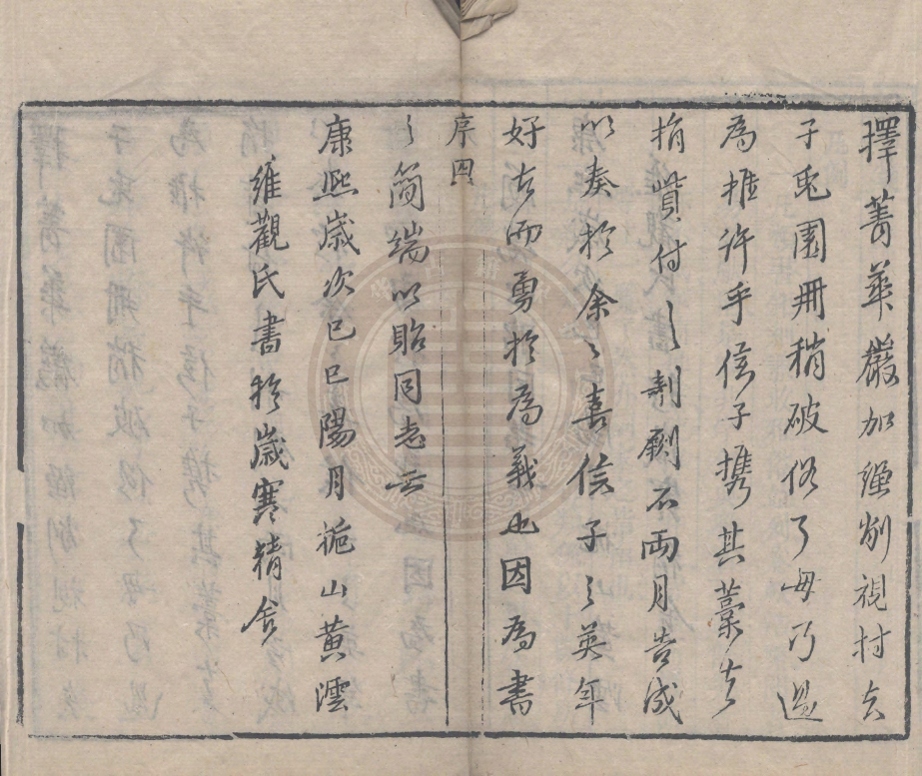 擇菁華嚴加繩削視村夫
子兎園冊稍破俗了毋乃過
為推許乎信子携其藁去
捐貲付之剞劂不兩月告成
以奏於余〻喜信子之英年
好古而勇於為義也因為書
序四
之簡端以貽同志云
康熙歲次己巳陽月福山黃澐
維觀氏書於歲寒精舍